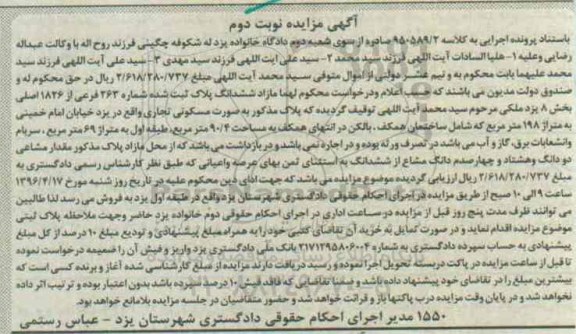 آگهی مزایده نوبت دوم
باستناد پرونده اجرایی به کلاسه ۹۵۰۵۸۹/۲ صادره از سوی شعبه دوم دادگاه خانواده یزد له شکوفه چگینی فرزند روح اله با وکالت عبداله
رضایی وعلیه ۱- علیا السادات آیت اللهی فرزند سید محمد ۲- سید علی آیت اللهی فرزند سید مهدی ۳- سید علی آیت اللهی فرزند سید
محمد علیهما بابت محکوم به و نیم عشر دولتی از اموال متوفی سید محمد آیت اللهی مبلغ ۲/۶۱۸/۲۸۰/۷۳۷ ریال در حق محکوم له و
صندوق دولت مدیون می باشند که حسب اعلام ودرخواست محکوم لهما مازاد ششدانگ پلاک ثبت شده شماره ۲۶۳ فرعی از ۱۸۲۶ اصلی
بخش ۸ یزد ملکی مرحوم سید محمد آیت اللهی توقیف گردیده که پلاک مذکور به صورت مسکونی تجاری واقع در یزد خیابان امام خمینی
به متراژ ۱۹۸ متر مربع که شامل ساختمان همکف، بالکن در انتهای همکف به مساحت ۹۰/۴ متر مربع، طبقه اول به متراژ ۶۹ متر مربع، سرپام
وانشعابات برق، گاز و آب می باشد در تصرف ورثه بوده و در اجاره نمی باشد و در بازداشت می باشد که از محل مازاد پلاک مذکور مقدار مشاعی
دو دانگ وهشتاد و چهارصدم دانگ مشاع از ششدانگ به استثنای ثمن بهای عرصه واعیانی که طبق نظر کارشناس رسمی دادگستری به
مبلغ ۲/۶۱۸/۲۸۰/۷۳۷ ریال ارزیابی گردیده موضوع مزایده می باشد که جهت ادای دین محکوم علیه در تاریخ روز شنبه مورخ ۱۳۹۶/۴/۱۷
ساعت ۹ الی ۱۰ صبح از طریق مزایده در اجرای احکام حقوقی دادگستری شهرستان یزد واقع در طبقه اول یزد به فروش می رسد لذا طالبین
می توانند ظرف مدت پنج روز قبل از مزایده در ساعت اداری در اجرای احکام حقوقی دوم خانواده یزد حاضر وجهت ملاحظه پلاک ثبتی
موضوع مزایده اقدام نماید و در صورت تمایل به خرید آن تقاضای کتبی خود را به همراه مبلغ پیشنهادی و تودیع مبلغ ۱۰ درصد از کل مبلغ
پیشنهادی به حساب سپرده دادگستری به شماره ۲۱۷۱۲۹۵۸۰۶۰۰۴ بانک ملی دادگستری یزد واریز و فیش آن را ضمیمه درخواست نموده
تا قبل از ساعت مزایده در پاکت دربسته تحویل اجرا نموده و رسید دریافت دارند مزایده از مبلغ کارشناسی شده آغاز و برنده کسی است که
بیشترین مبلغ را در تقاضای خود پیشنهاد داده باشد و ضمنا تقاضایی که فاقد فیش ۱۰ درصد سپرده باشد بدون اعتبار بوده و ترتیب اثر داده
نخواهد شد و در پایان وقت مزایده درب پاکتها باز و قرائت خواهد شد و حضور متقاضیان در جلسه مزایده بلامانع خواهد بود.
۱۵۵۰ مدیر اجرای احکام حقوقی دادگستری شهرستان یزد - عباس رستمی